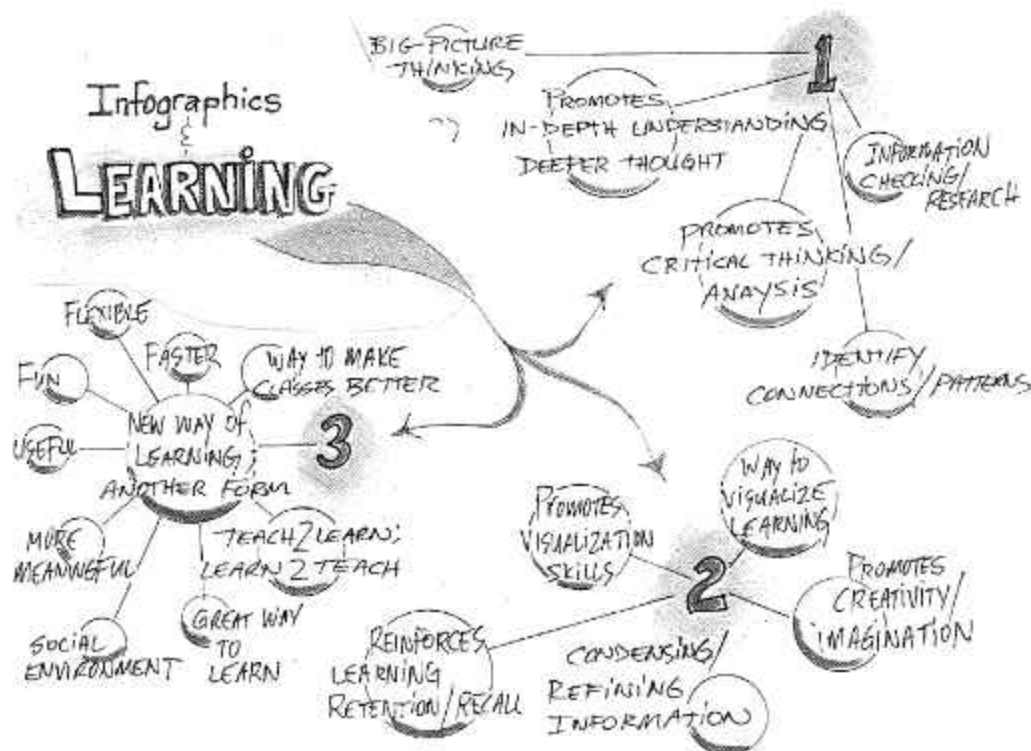 Infographics
&
LEARNING
1
BIG-PICTURE
THINKING
PROMOTES
IN-DEPTH UNDERSTANDING
DEEPER THOUGHT
INFORMATION
CHECKING/
RESEARCH
PROMOTES
CRITICAL THINKING/
ANAYSIS
IDENTIFY
CONNECTIONS/PATTERNS
2
WAY TO
VISUALIZE
LEARNING
PROMOTES
VISUALIZATION
SKILLS
PROMOTES
CREATIVITY/
IMAGINATION
REINFORCES
LEARNING
RETENTION/RECALL
CONDENSING/
REFINING
INFORMATION
3
NEW WAY OF
LEARNING;
ANOTHER FORM
FLEXIBLE
FASTER
WAY TO MAKE
CLASSES BETTER
FUN
USEFUL
MORE
MEANINGFUL
SOCIAL
ENVIRONMENT
GREAT WAY
TO
LEARN
TEACH2LEARN;
LEARN2TEACH